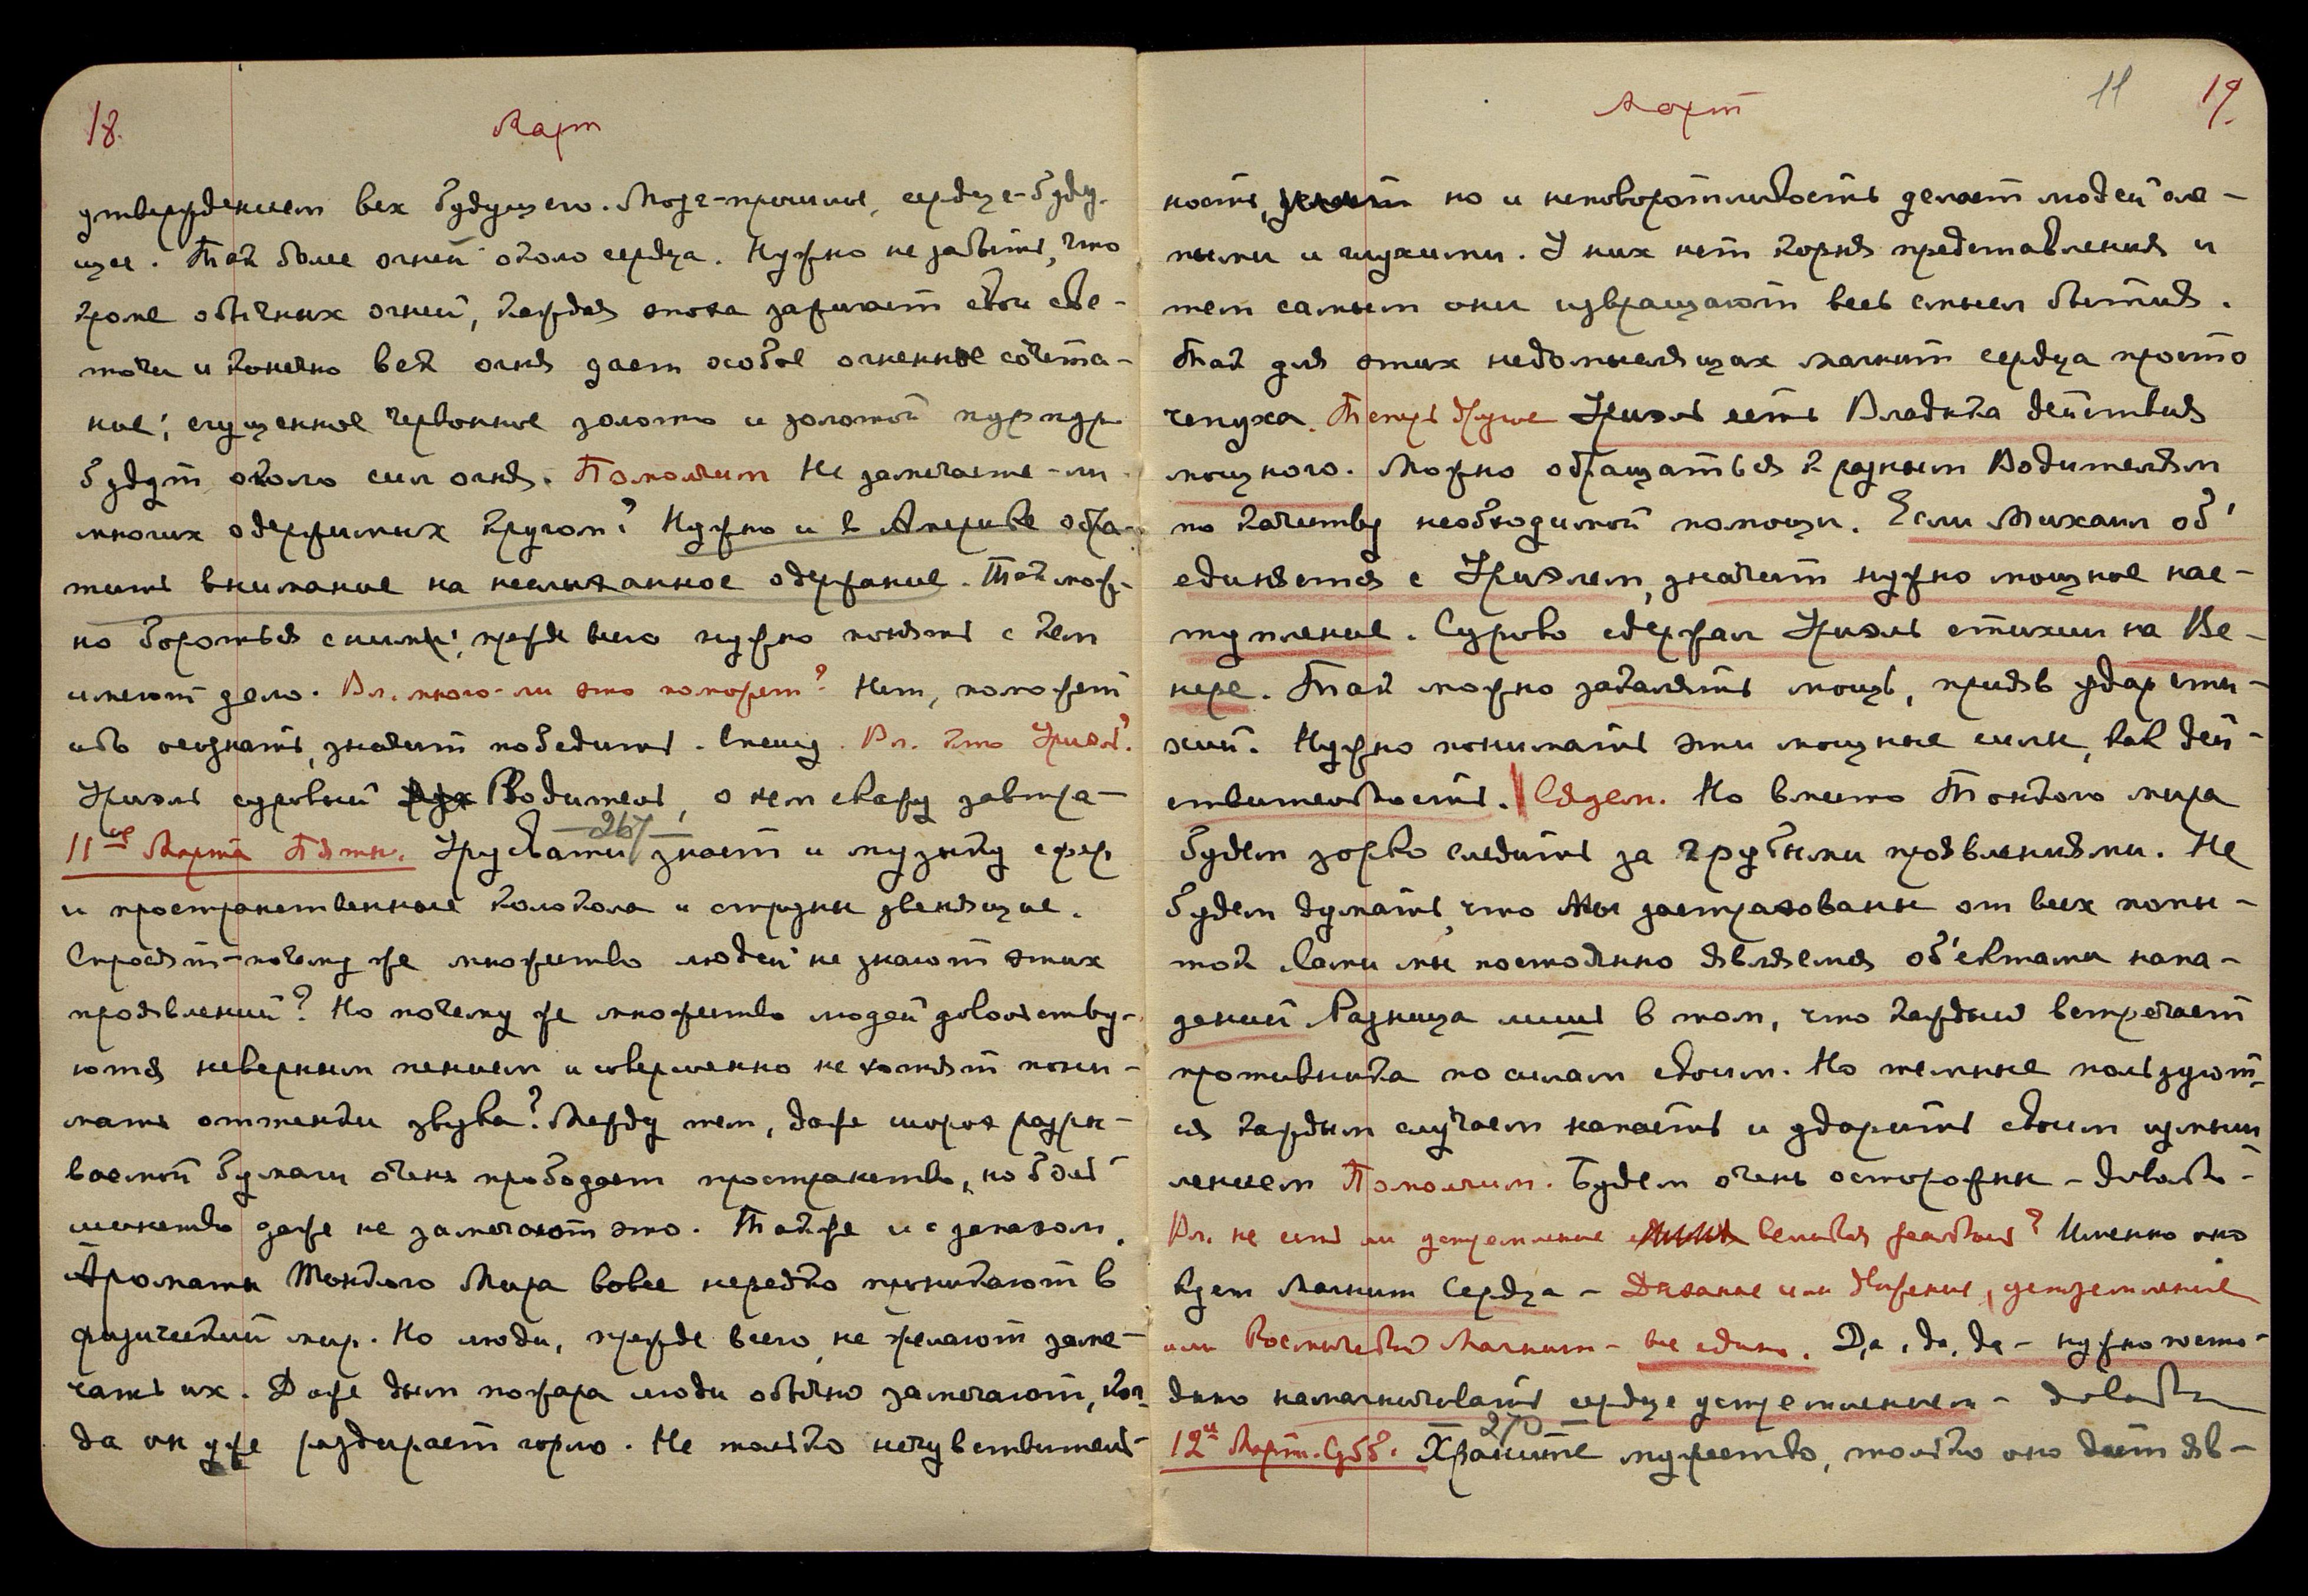 18.
Март
утверждением всх будущего. Мозг-прошлое, сердце-буду-
щее. Так более огней около сердца. Нужно не забыть, что
кроме обычных огней, каждая эпоха зажигает свои све-
точи и конечно век огня дает особое огненное сочета-
ние; сгущенное червонное золото и золотой пурпур
будут около сил огня. Помолчим Не замечаете-ли
многих одержимых кругом? Нужно и в Америке обра-
тить внимание на неслыханное одержание. Так мож-
но бороться с ними; прежде всего нужно понять с кем
имеют дело. Вл. много-ли это поможет? Нет, поможет
ибо осознать, значит победить. Спешу. Вл. кто Уриил?
Уриил суровый Водитель, о нем скажу завтра—
—267—
11ое Марта Пятн. Урусвати знает и музыку сфер
и пространственные колокола и струны звенящие.
Спросят-почему же множество людей не знают этих
проявлений? Но почему же множество людей довольству-
ются неверным пением и совершенно не хотят пони-
мать оттенки звука? Между тем, даже шорох разры-
ваемой бумаги очень прободает пространство, но боль-
шинство даже не замечают это. Также и с запахом.
Ароматы Тонкого Мира вовсе нередко проникают в
физический мир. Но люди, прежде всего, не желают заме-
чать их. Даже дым пожара люди обычно замечают, ког-
да он уже раздирает горло. Не только нечувствитель-
11
19.
Март
ность, но и неповоротливость делает людей сле-
пыми и глухими. У них нет корня представления и
тем самым они извращают весь смысл бытия.
Так для этих недомыслящих магнит сердца просто
чепуха. Теперь Уриил есть Владыка действия
мощного. Можно обращаться к разным Водителям
по качеству необходимой помощи. Если Михаил об'
единяется с Уриилем, значит нужно мощное нас-
тупление. Сурово сдержал Уриил стихии на Ве-
нере. Так можно закалять мощь, приняв удар сти-
хий. Нужно понимать эти мощные силы, как дей-
ствительность. Сядем. Но вместо Тонкого мира
будем зорко следить за грубыми проявлениями. Не
будем думать, что мы застрахованы от всех попы-
ток Сами мы постоянно являемся об'ектами напа-
дений Разница лишь в том, что каждый встречает
противника по силам своим. Но темные пользуют-
ся каждым случаем напасть и ударить своим измыш-
лением Помолчим. Будем очень осторожны - довольно-
Вл. не есть ли устремление великая реальность? Именно оно
кует Магнит Сердца - Дыхание или Движение, устремление
или Космический Магнит - все едино. Да, да, да - нужно посто-
янно намагничивать сердце устремлением - довольно
270
12ое Март. Субб. Храните мужество, только оно дает яв-